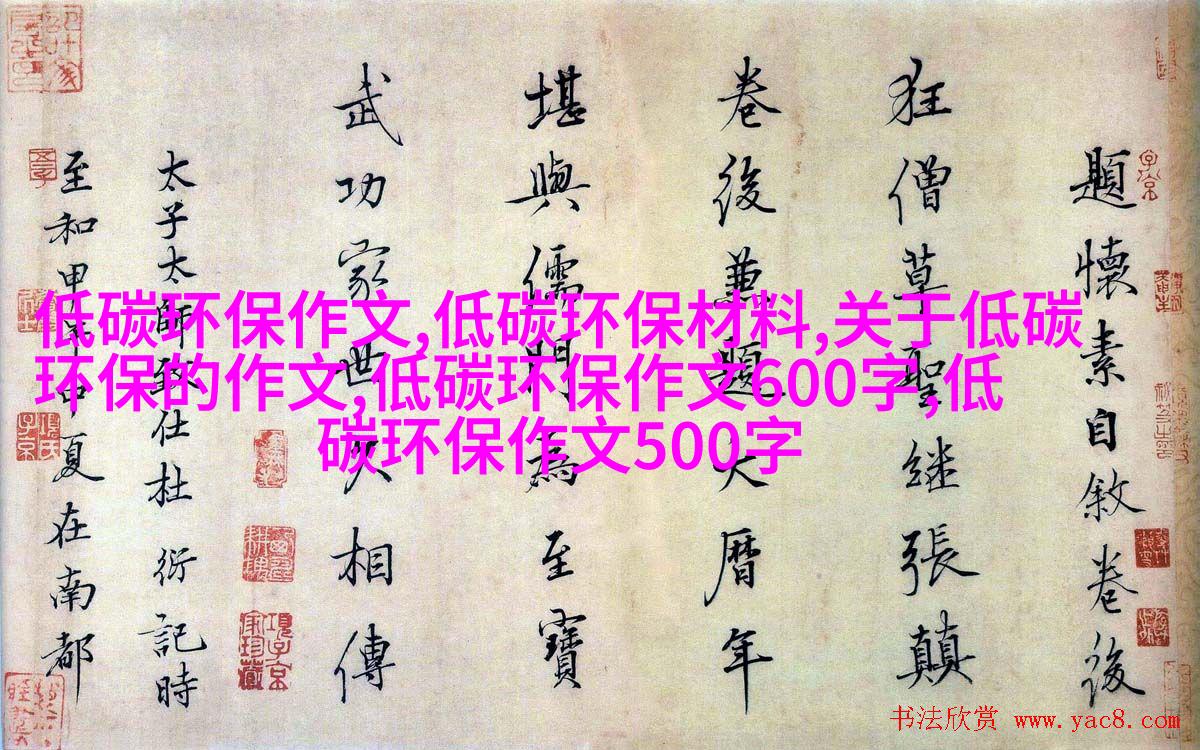 題懷素自敘卷後
狂僧草聖继張顛
卷後兼題大曆年
堪與儒門為至寶
武功家世久相傳
太子太師致仕杜衍記時
至和甲午中夏在南都
低碳环保作文,低碳环保材料,关于低碳
环保的作文,低碳环保作文600字,低
碳环保作文500字
书法欣赏 www.yac8.com